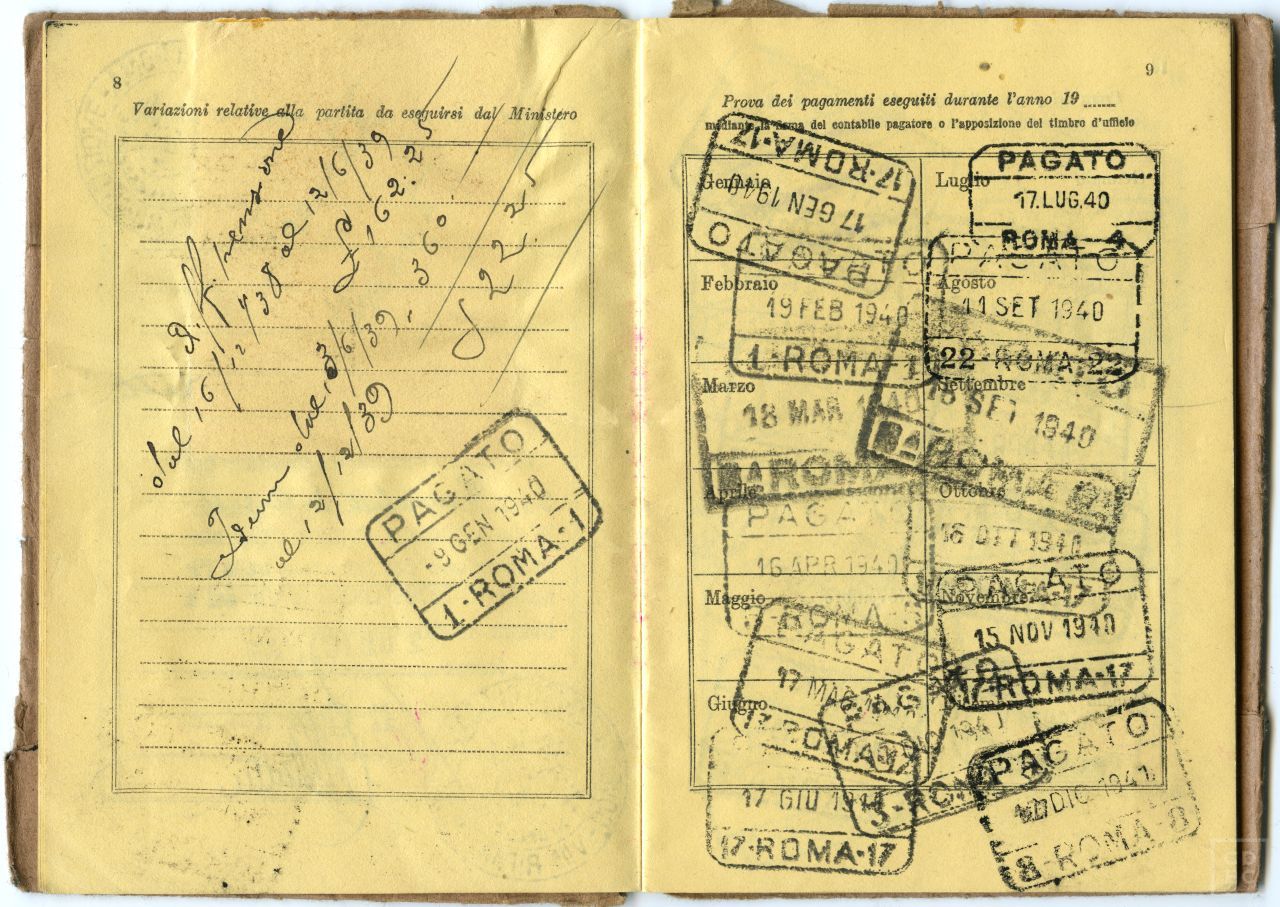 8
Variazioni relative alla partita da eseguirsi dal Ministero
pensione
dal 16/12/38 al 12/6/39
162.25
Idem dal 13/6/39
al 12/12/39
360.
PAGATO
-9 GEN 1940
1-ROMA-1
9
Prova dei pagamenti eseguiti durante l'anno 19
mediante la firma del contabile pagatore o l'apposizione del timbro d'ufficio
Gennaio
17-ROMA-17
17 GEN 1940
PAGATO
Febbraio
19 FEB 1940
1-ROMA-1
Marzo
18 MAR 1940
ROMA
Aprile
PAGATO
16 APR 1940
ROMA
Maggio
PAGATO
17 MAG
17-ROMA-17
Giugno
17 GIU
17-ROMA-17
Luglio
PAGATO
17.LUG.40
ROMA 4
Agosto
PAGATO
11 SET 1940
22-ROMA-22
Settembre
SET 1940
ROMA
Ottobre
16 OTT 1940
Novembre
PAGATO
15 NOV 1940
17-ROMA-17
PAGATO
DIC
PAGATO
DIC. 1941
8-ROMA-8